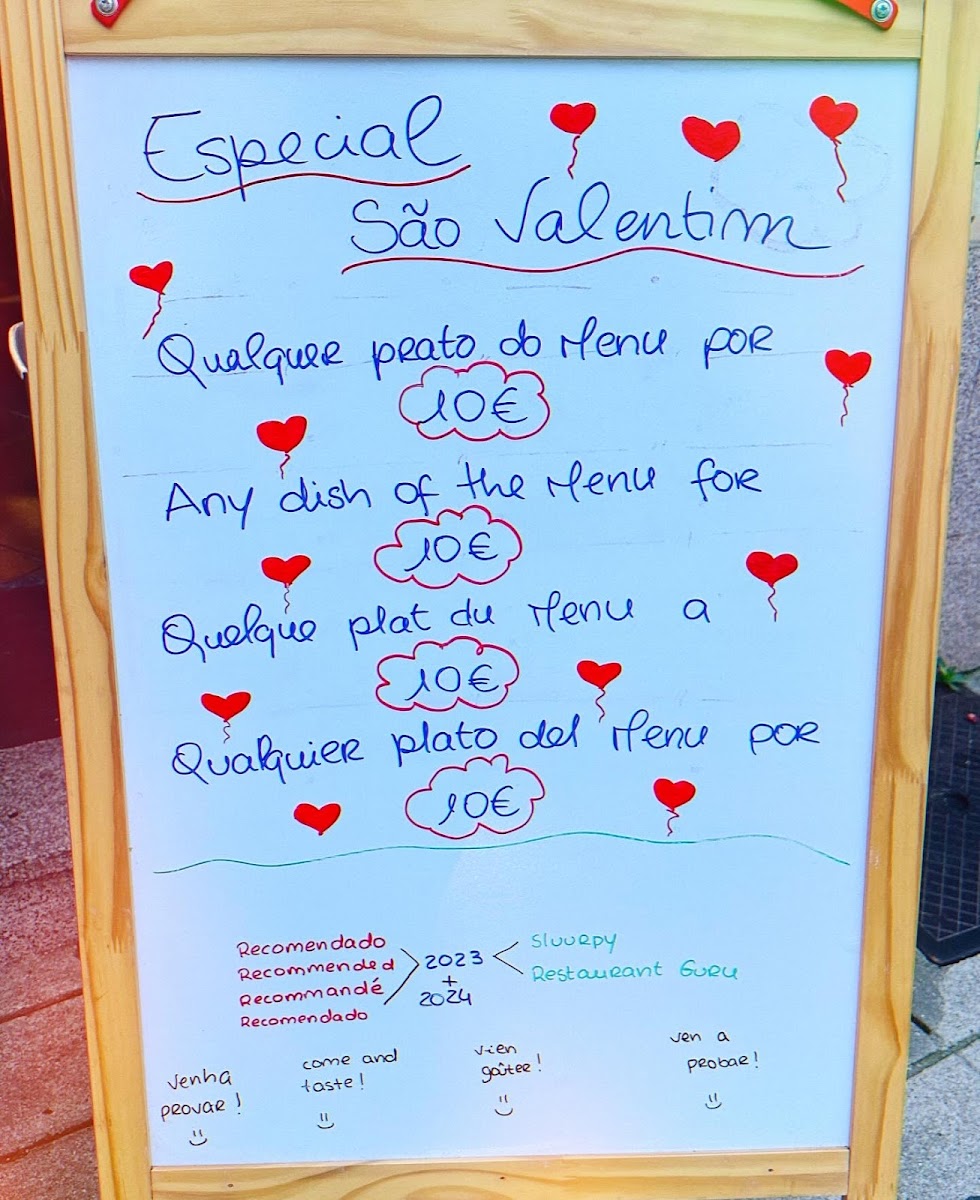 Especial
São Valentim
Qualquer prato do Menu por
10€
Any dish of the Menu for
10€
Quelque plat du Menu a
10€
Qualquier plato del Menu por
10€
Recomendado
Recommended
Recommandé
Recomendado
2023
+
2024
Sluurpy
Restaurant Guru
Venha
provar!
come and
taste!
vien
goûter!
ven a
probar!